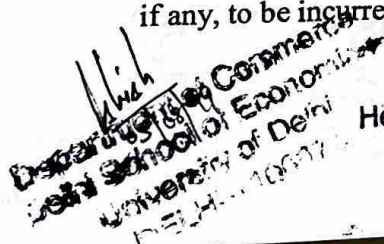 if any, to be incurre
Department of Commerce
Delhi School of Economics
University of Delhi
He
DELHI-110007